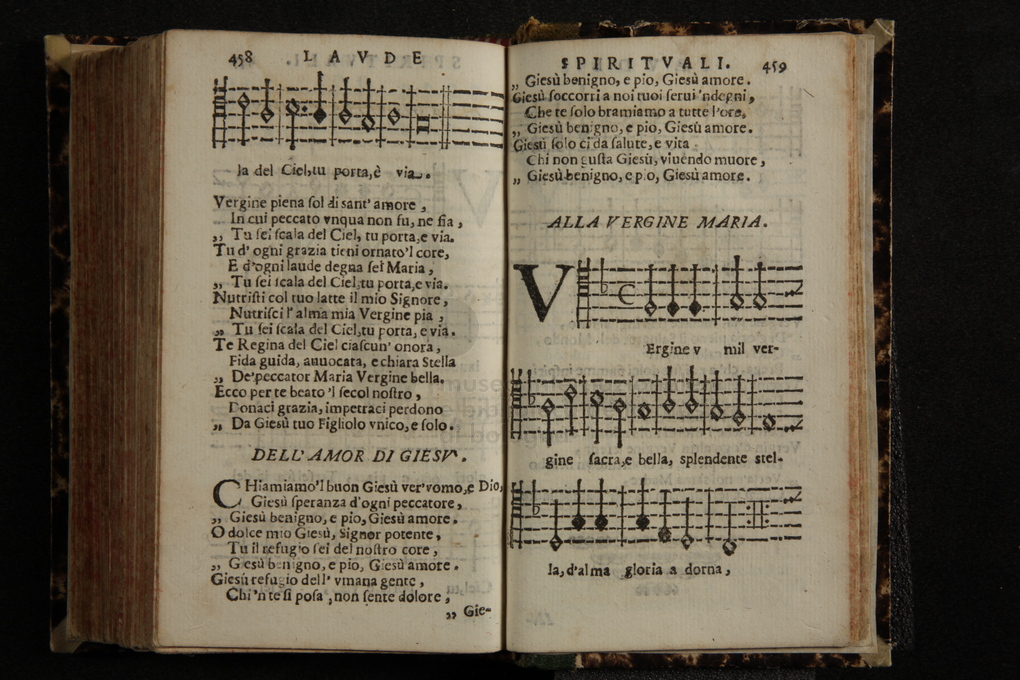 458 LAVDE
la del Ciel,tu porta,è via.
Vergine piena sol di sant' amore ,
In cui peccato vnqua non fu, ne fia ,
,, Tu sei scala del Ciel, tu porta,e via.
Tu d' ogni grazia tieni ornato'l core,
E d'ogni laude degna sei Maria ,
,, Tu sei scala del Ciel,tu porta,e via.
Nutristi col tuo latte il mio Signore,
Nutrisci l' alma mia Vergine pia ,
,, Tu sei scala del Ciel,tu porta, e via.
Te Regina del Ciel ciascun' onora,
Fida guida, auuocata, e chiara Stella
,, De'peccator Maria Vergine bella.
Ecco per te beato 'l secol nostro ,
Donaci grazia, impetraci perdono
,, Da Giesù tuo Figliolo vnico,e solo.
DELL'AMOR DI GIESV'.
CHiamiamo'l buon Giesù ver'vomo,e Dio,
Giesù speranza d'ogni peccatore ,
,, Giesù benigno, e pio, Giesù amore.
O dolce mio Giesù, Signor potente ,
Tu il refugio sei del nostro core ,
,, Giesù benigno, e pio, Giesù amore.
Giesù refugio dell' vmana gente ,
Chi 'n te si posa , non sente dolore ,
,, Gie-
SPIRITVALI. 459
,, Giesù benigno, e pio, Giesù amore.
Giesù soccorri a noi tuoi serui 'ndegni ,
Che te solo bramiamo a tutte l'ore,
,, Giesù benigno, e pio, Giesù amore.
Giesù solo ci da salute, e vita
Chi non gusta Giesù, viuendo muore ,
,, Giesù benigno, e pio, Giesù amore.
ALLA VERGINE MARIA.
VErgine v mil ver-
gine sacra,e bella, splendente stel-
la,d'alma gloria a dorna ,